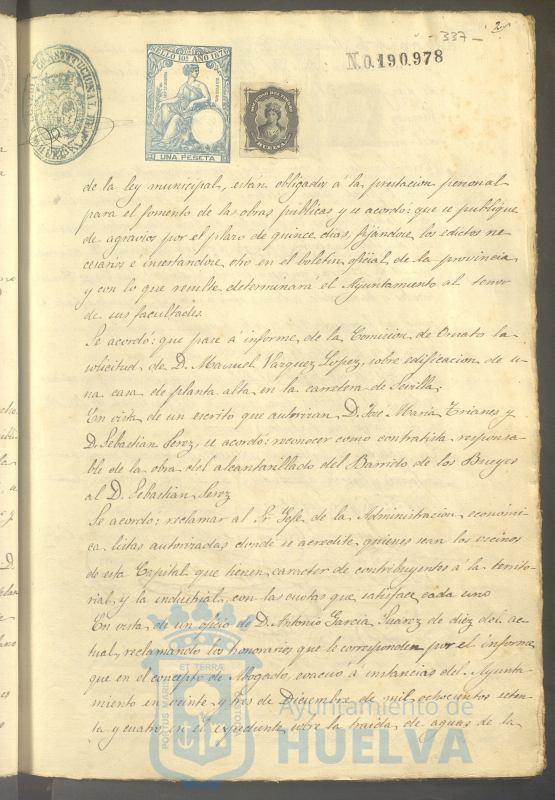 - 337 -
2
N.0.190.978
SELLO 10º AÑO 1876
UNA PESETA
HUELVA
de la ley municipal, están obligados á la prestacion personal
para el fomento de las obras públicas y se acordó: que se publique
de agravios por el plazo de quince dias, fijándose los edictos ne-
cesarios é insertandose otro en el boletin oficial de la provincia
y con lo que resulte determinara el Ayuntamiento al tenor
de sus facultades.
Se acordó: que pase á informe de la Comision de Ornato la
solicitud de D. Manuel Vazquez Lopez, sobre edificacion de u-
na casa de planta alta en la carretera de Sevilla.
En vista de un escrito que autorizan D. José Maria Trianes y
D. Sebastian Perez, se acordó: reconocer como contratista responsa-
ble de la obra del alcantarillado del Barrido de los Bueyes
al D. Sebastian Perez
Se acordó: reclamar al Sr. Jefe de la Administracion económi-
ca listas autorizadas donde se acredite quienes sean los vecinos
de esta Capital que tienen caracter de contribuyentes á la territo-
rial y la industrial con las cuotas que satisface cada uno
En vista de un oficio de D. Antonio Garcia Suarez de diez del ac-
tual, reclamando los honorarios que le corresponden por el informe
que en el concepto de Abogado, evacuó á instancias del Ayunta-
miento en veinte y tres de Diciembre de mil ochocientos seten-
ta y cuatro en el expediente sobre la traida de aguas de la
PORTUS MARIS ET TERRÆ CUSTODIA
Ayuntamiento de
HUELVA